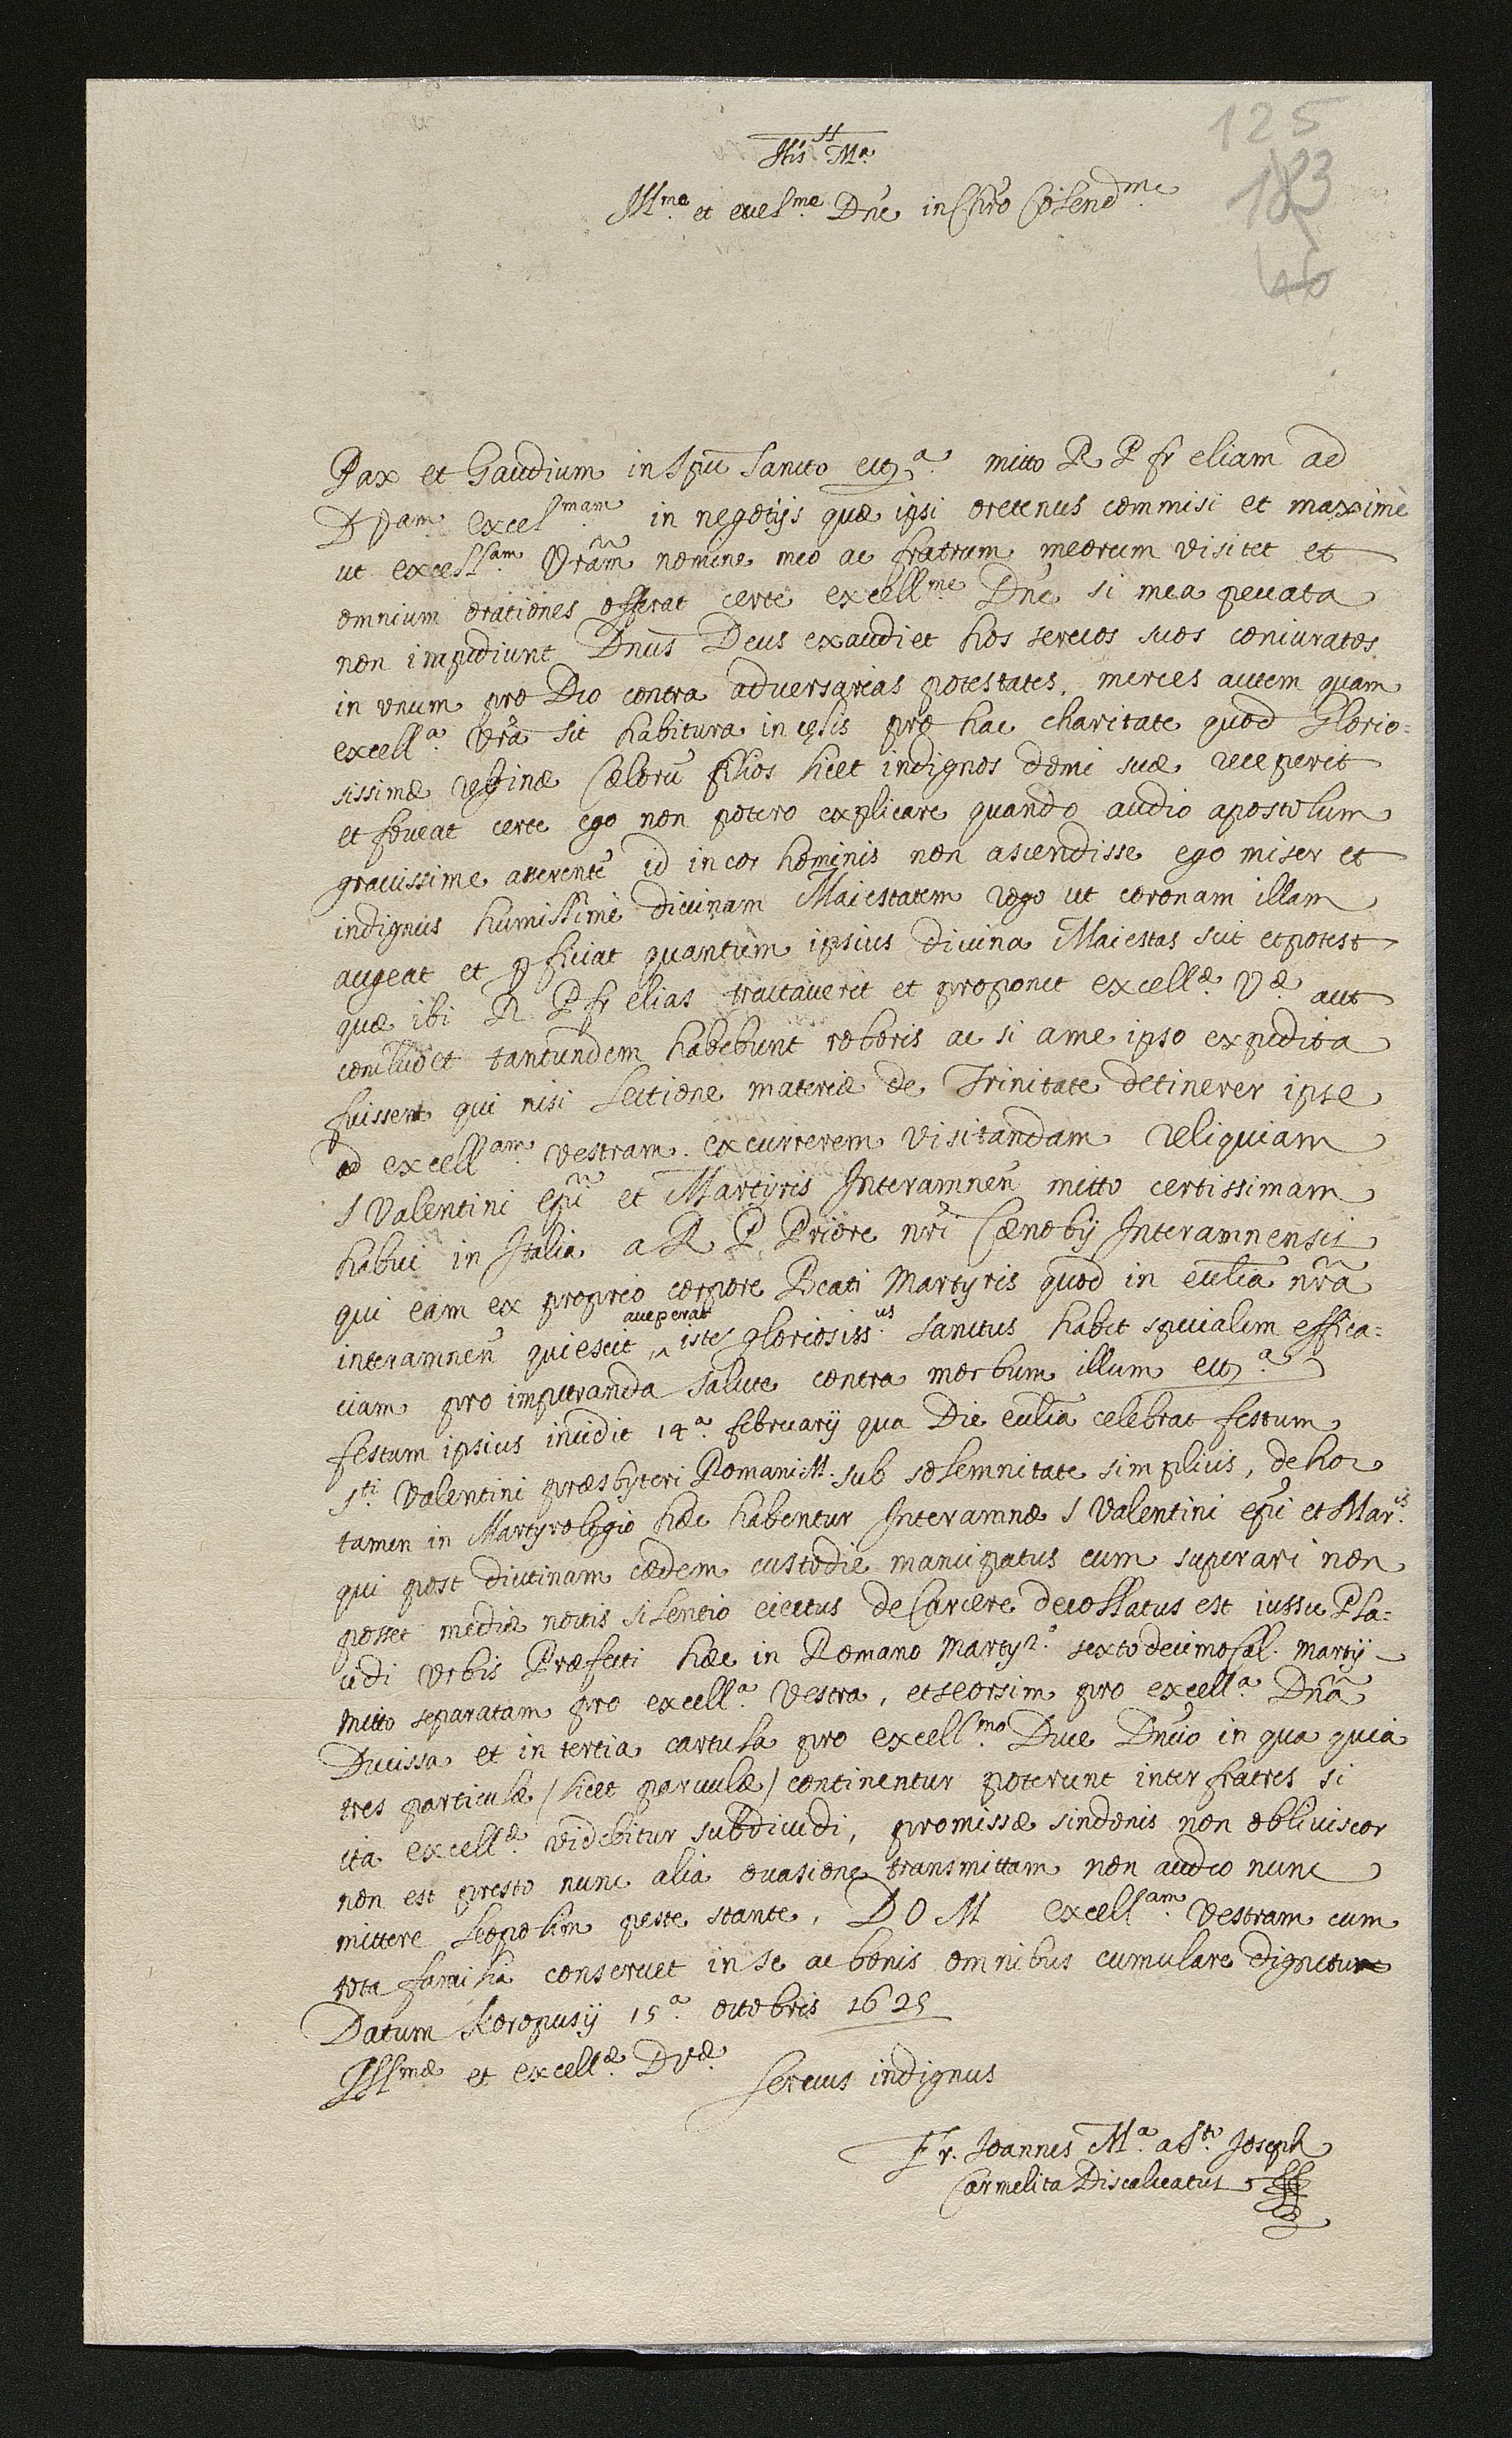 125
183
46
Jhs Ma
Illme et excelme Dñe in Chro Colendme
Pax et Gaudium in Spu Sancto etca mitto R P fr eliam ad
D Vam excelmam in negotijs quæ ipsi oretenus commisi et maximè
ut excellam Vram nomine meo ac fratrum meorum visitet et
omnium orationes offerat certe excellme Dñe si mea peccata
non impediunt Dnus Deus exaudiet hos servos suos coniuratos
in unum pro Deo contra adversarias potestates, merces autem quam
excella vra sit habitura in cęlis pro hac charitate quod Glorio=
sissimæ reginæ Cælorũ filios licet indignos domi suæ receperit
et foveat certe ego non potero explicare quando audio apostolum
gravissime asserentẽ id in cor hominis non ascendisse ego miser et
indignus humillimè divinam Maiestatem rogo ut coronam illam
augeat et pficiat quantùm ipsius divina Maiestas scit et potest
quæ ibi R P fr elias tractaverit et proponet excellæ Væ aut
concludet tantundem habebunt roboris ac si a me ipso expedita
fuissent qui nisi lectione materiæ de Trinitate detinerer ipse
ad excellam vestram excurrerem visitandam reliquiam
S Valentini epĩ et Martyris Interamneñ mitto certissimam
habui in Italia a R P Priore nri Cænobij Interamnensis
qui eam ex proprio corpore Beati Martyris quod in ecclia nra
interamneñ quiescit acceperat iste gloriosissus sanctus habet specialem effica=
ciam pro impetranda salute contra morbum illum etca
festum ipsius incidit 14a februarij qua Die ecclia celebrat festum
Sti Valentini præsbyteri Romani M. sub solemnitate simplicis, de hoc
tamen in Martyrologio hæc habentur Interamnæ S Valentini epi et Maris
qui post diutinam cædem custodiæ mancipatus cum superari non
posset mediæ noctis silentio eiectus de Carcere decollatus est iussu Pla=
cidi Urbis Præfecti hæc in Romano Martyro sexto decimo Cal. Martij
mitto separatam pro excella Vestra, et seorsim pro excella Dna
Ducissa et in tertia cartula pro excellmo Duce Dnico in qua quia
tres particulæ (licet parvulæ) continentur poterunt inter fratres si
ita excellæ videbitur subdividi, promissæ sindonis non obliviscor
non est presto nunc alia occasione transmittam non audeo nunc
mittere leopolim peste stante, D O M excellam Vestram cum
tota familia conservet in se ac bonis omnibus cumulare dignetur
Datum Koropusij 15a octobris 1625
Illmæ et excellæ D Væ
servus indignus
Fr. Ioannes Ma a Sto Joseph
Carmelita Discalceatus